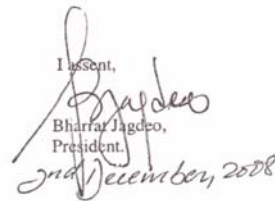 I assent,
BJagdeo
Bharrat Jagdeo,
President.
2nd December, 2008